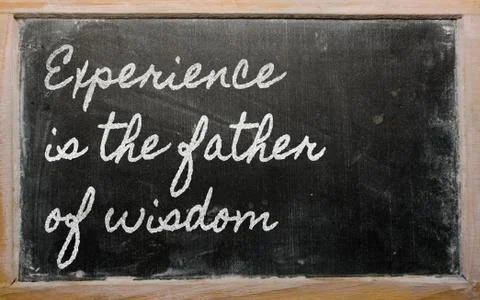 Experience
is the father
of wisdom